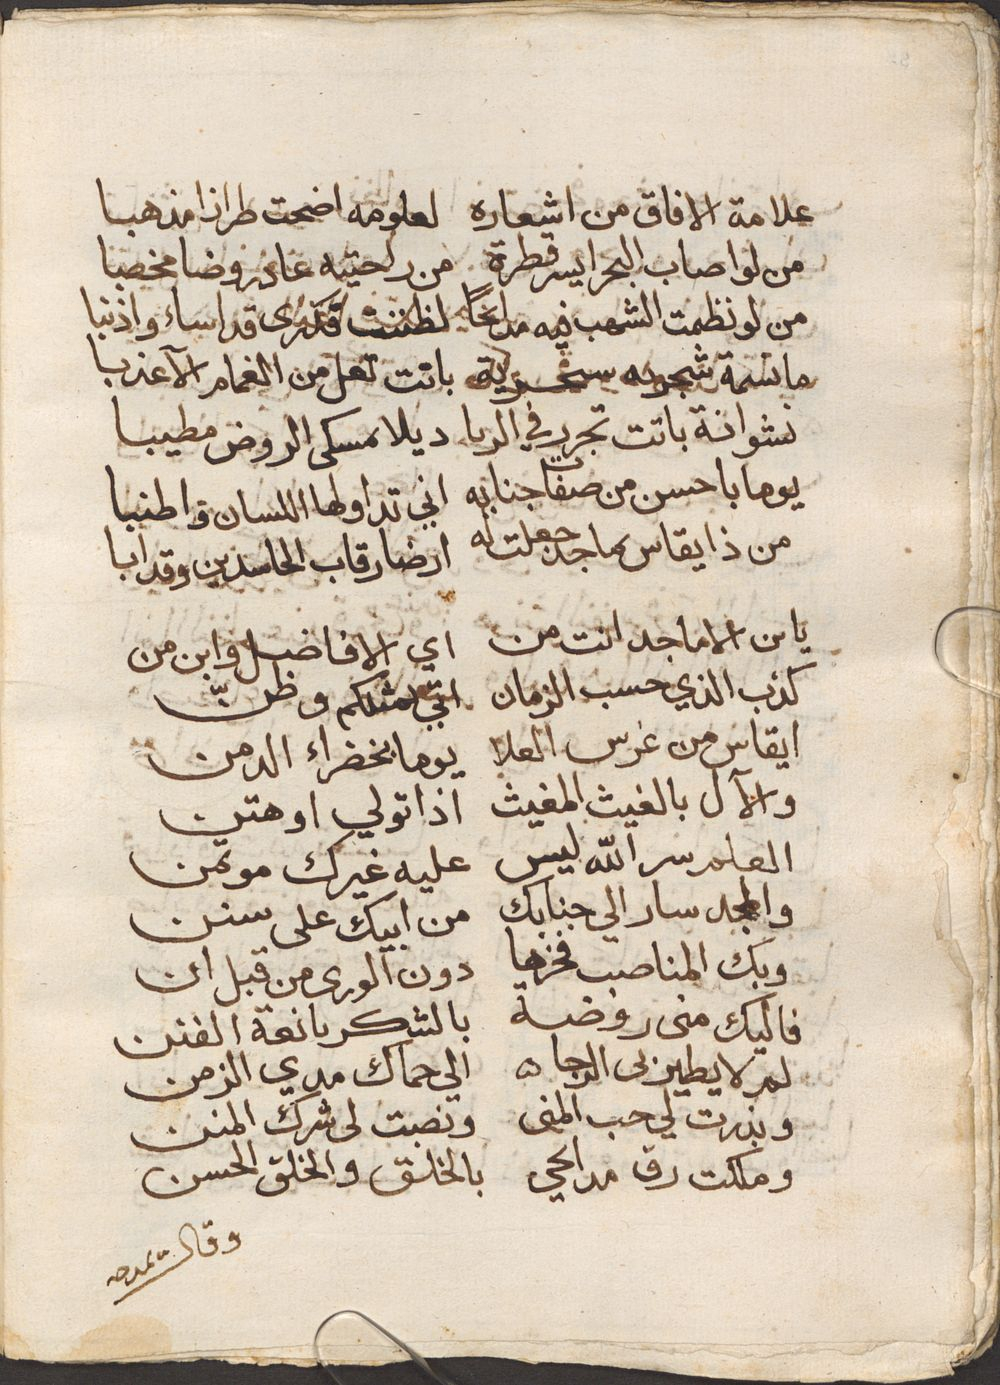 علامة الافاق من اشعاره لعلومه اضحت طرازا مذهبا
من لو اصاب البحر ايسر قطرة من راحتيه عاد روضا مخصبا
من لو نظمت الشهب فيه مدائحًا لظننت قدرى قد اساء واذنبا
ما نسمة شجرية سحرية باتت تعل من الغمام الاعذبا
نشوانة باتت تجرر في الربا ديلا بمسكى الروض مطيبا
يوما باحسن من صفات جنابه اني تداولها اللسان واطنبا
من ذا يقاس بماجد جعلت له ارضا رقاب الحاسدين وقد ابا
يا بن الاماجد انت من اي الافاضل وابن من
كذب الذي حسب الزمان اتي بمثلكم وظنّ
ايقاس من غرس العلا يوما بخضراء الدمن
والآل بالغيث المغيث اذا تولي او هتن
العلم سر الله ليس عليه غيرك موتمن
والمجد سار الي جنابك من ابيك على سنن
وبك المناصب فخرها دون الورى من قبل ان
فاليك منى روضة بالشكر يانعة الفنن
لم لا يطير بى الرجاه الي حماك مدي الزمن
وبذرت لي حب المنى ونصبت لى شرك المنن
وملكت رق مدائحي بالخلق والخلق الحسن
وقال يمدحه